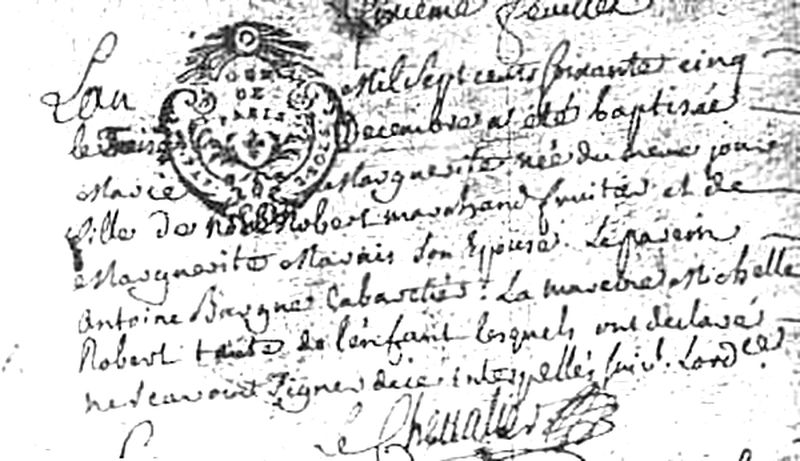 Sixieme feuillet
L'an Mil Sept cents soixante cinq
le Treize Decembre a été baptisée
Marie Marguerite née du meme jour
fille de Robert marchand fruitier et de
Marguerite Marais son Epouse. Le parein
Antoine Cabartier. La mareine Michelle
Robert tante de l'enfant lesquels ont declaré
ne scavoir signer de ce interpellés suiv.t Lord.ce
Chevalier